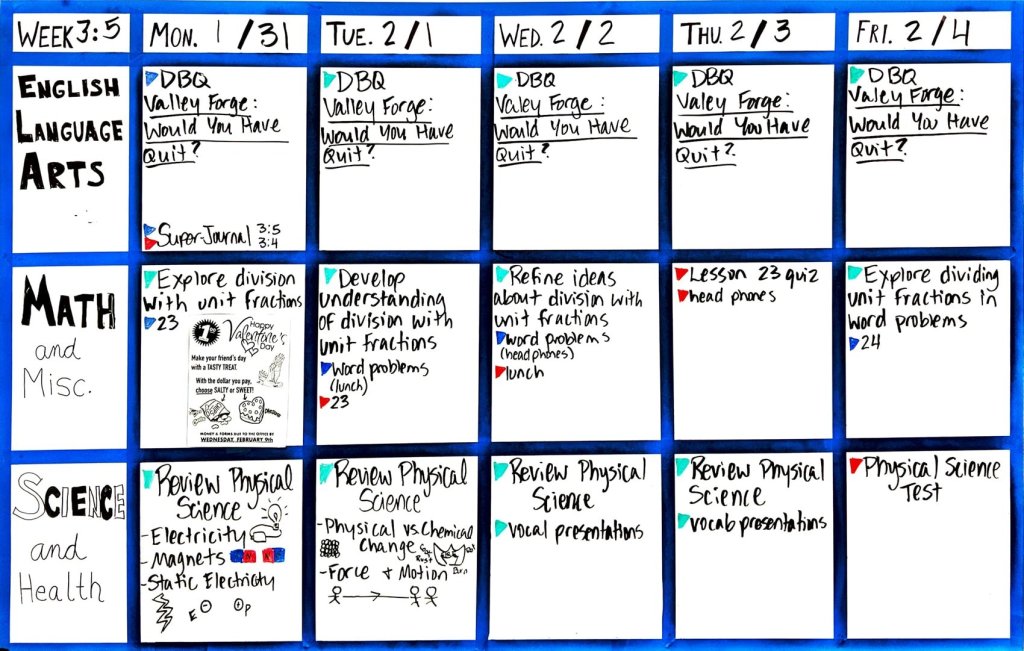 WEEK 3:5
MON. 1/31
TUE. 2/1
WED. 2/2
THU. 2/3
FRI. 2/4
ENGLISH
LANGUAGE
ARTS
DBQ
Valley Forge:
Would You Have
Quit?
Super-Journal 3:5
3:4
DBQ
Valley Forge:
Would You Have
Quit?
DBQ
Valey Forge:
Would You Have
Quit?
DBQ
Valey Forge:
Would You Have
Quit?
DBQ
Valey Forge:
Would You Have
Quit?
MATH
and
Misc.
Explore division
with unit fractions
23
Happy
Valentine's
Day
Make your friend's day
with a TASTY TREAT.
With the dollar you pay,
choose SALTY or SWEET!
MONEY & FORMS DUE TO THE OFFICE BY
WEDNESDAY, FEBRUARY 9th
Develop
understanding
of division with
unit fractions
Word problems
(lunch)
23
Refine ideas
about division with
unit fractions
word problems
(headphones)
lunch
Lesson 23 quiz
head phones
Explore dividing
unit fractions in
word problems
24
SCIENCE
and
Health
Review Physical
Science
- Electricity
- Magnets
- Static Electricity
E - + P
Review Physical
Science
- Physical vs. Chemical
Change
Rust
Burn
- Force + Motion
Review Physical
Science
vocal presentations
Review Physical
Science
vocab presentations
Physical Science
Test